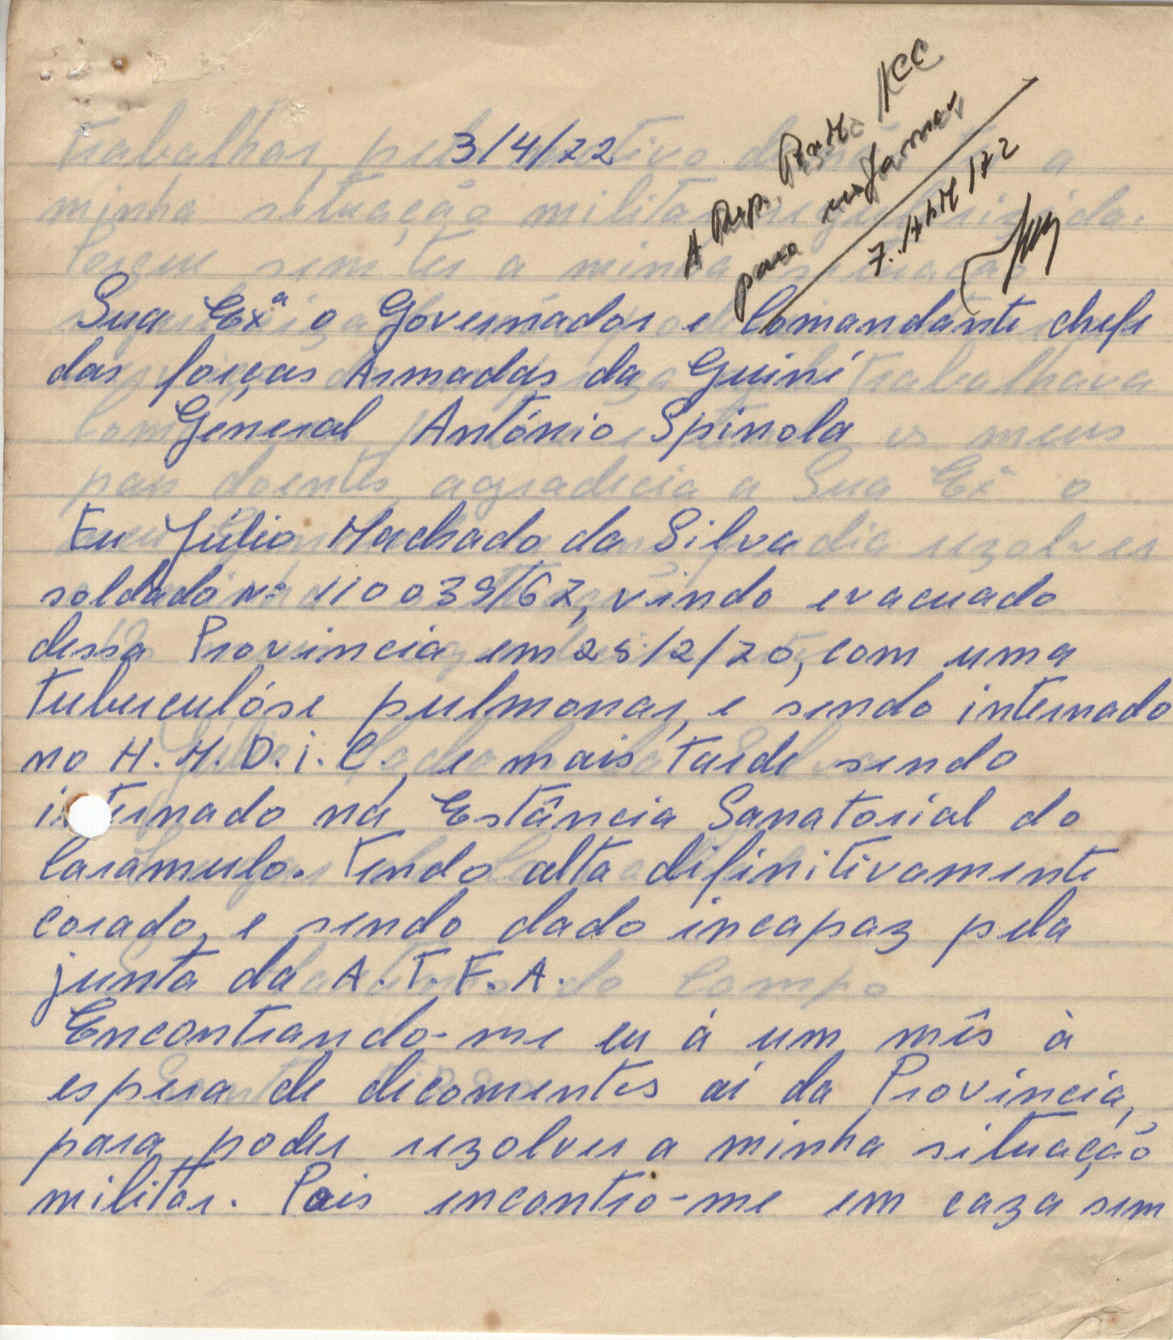 3/4/72
A Rep.
para informar
7.
Sua Exª o Governador e Comandante chefe
das forças Armadas da Guiné
General António Spinola
Eu Júlio Machado da Silva
soldado nº 110039/67, vindo evacuado
dessa Provincia em 25/2/70, com uma
tuberculóse pulmonar, e sendo internado
no H.M.D.i.C., e mais tarde sendo
internado na Estância Sanatorial do
Caramulo. Tendo alta difinitivamente
corado, e sendo dado incapaz pela
junta da A.T.F.A.
Encontrando-me eu á um mês à
espera de decomentos aí da Provincia,
para poder rezolver a minha situação
militar. Pois encontro-me em caza sem